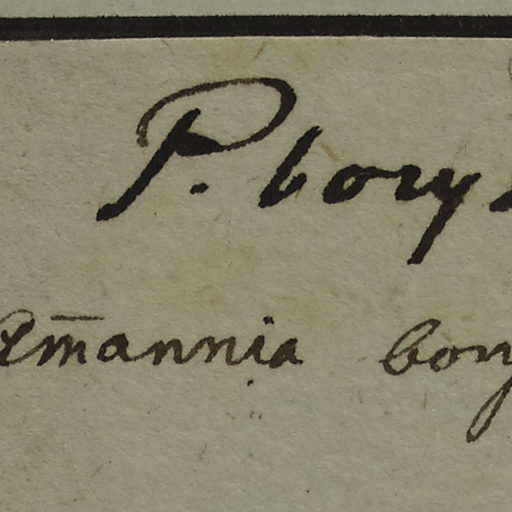 P. bory
Am̄annia bory